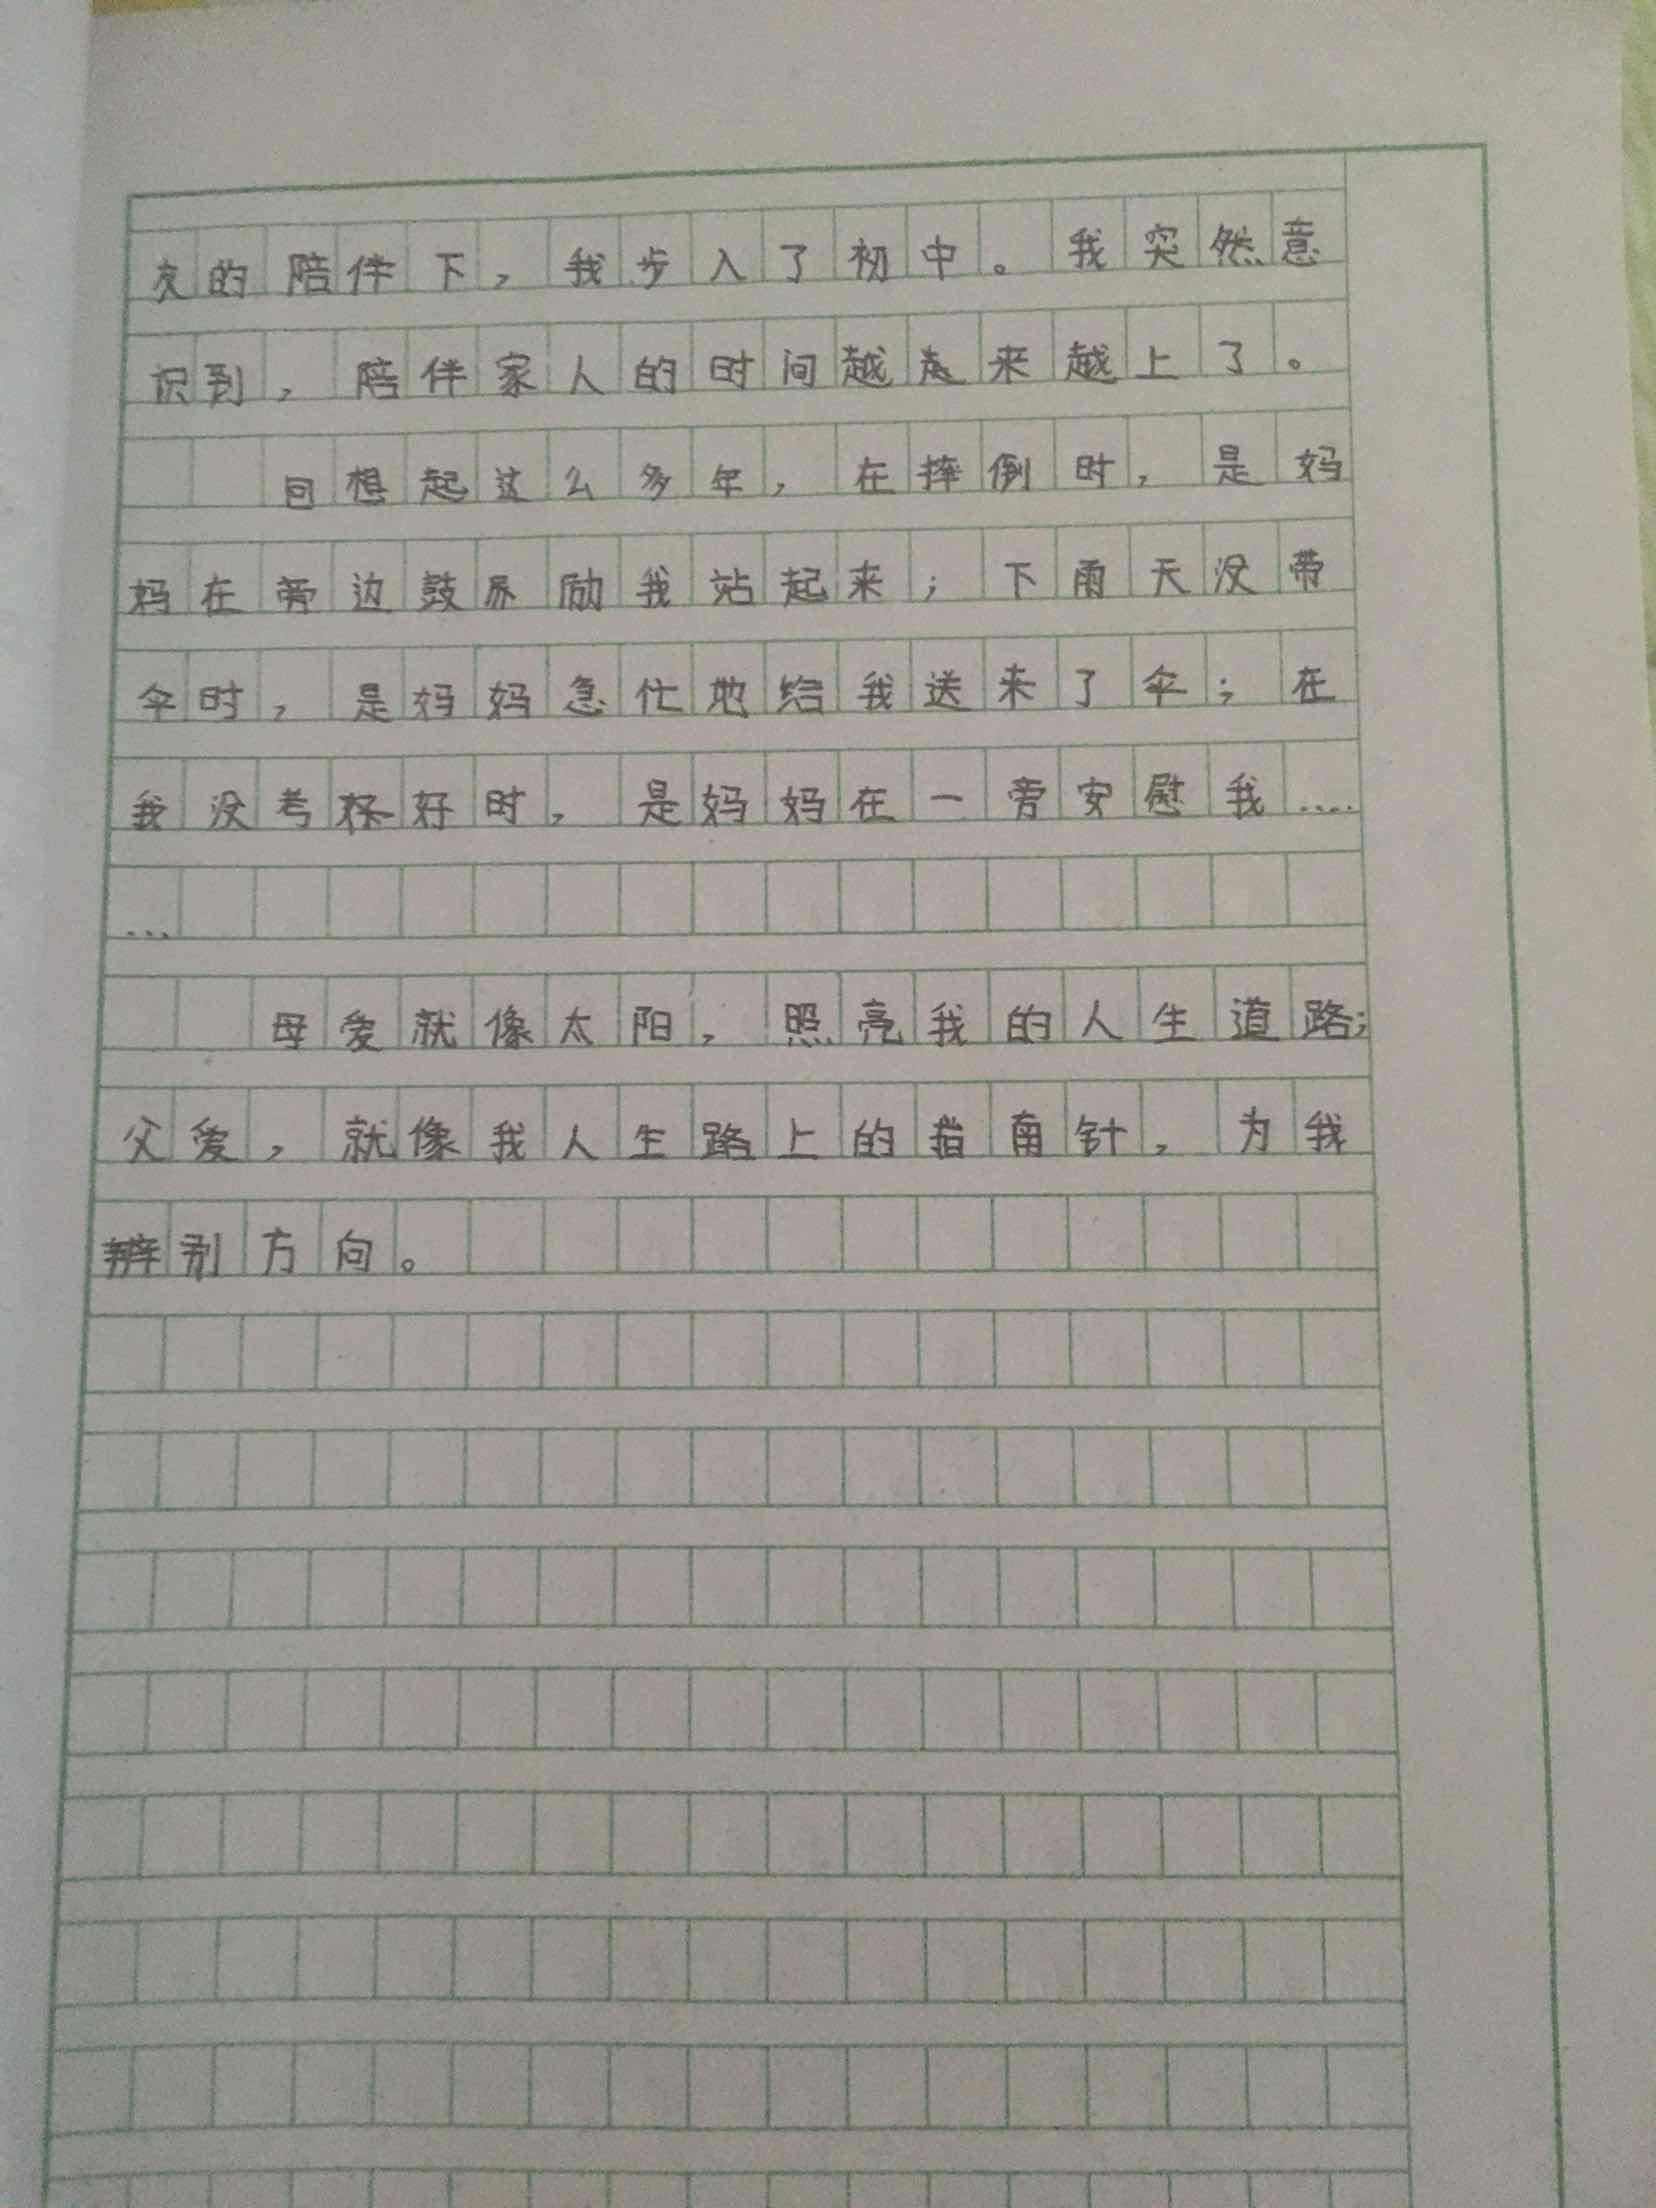 友的陪伴下，我步入了初中。我突然意
识到，陪伴家人的时间越来越上了。
回想起这么多年，在摔倒时，是妈
妈在旁边鼓励我站起来；下雨天没带
伞时，是妈妈急忙地给我送来了伞；在
我没考好时，是妈妈在一旁安慰我….
…
母爱就像太阳，照亮我的人生道路；
父爱，就像我人生路上的指南针，为我
辨别方向。